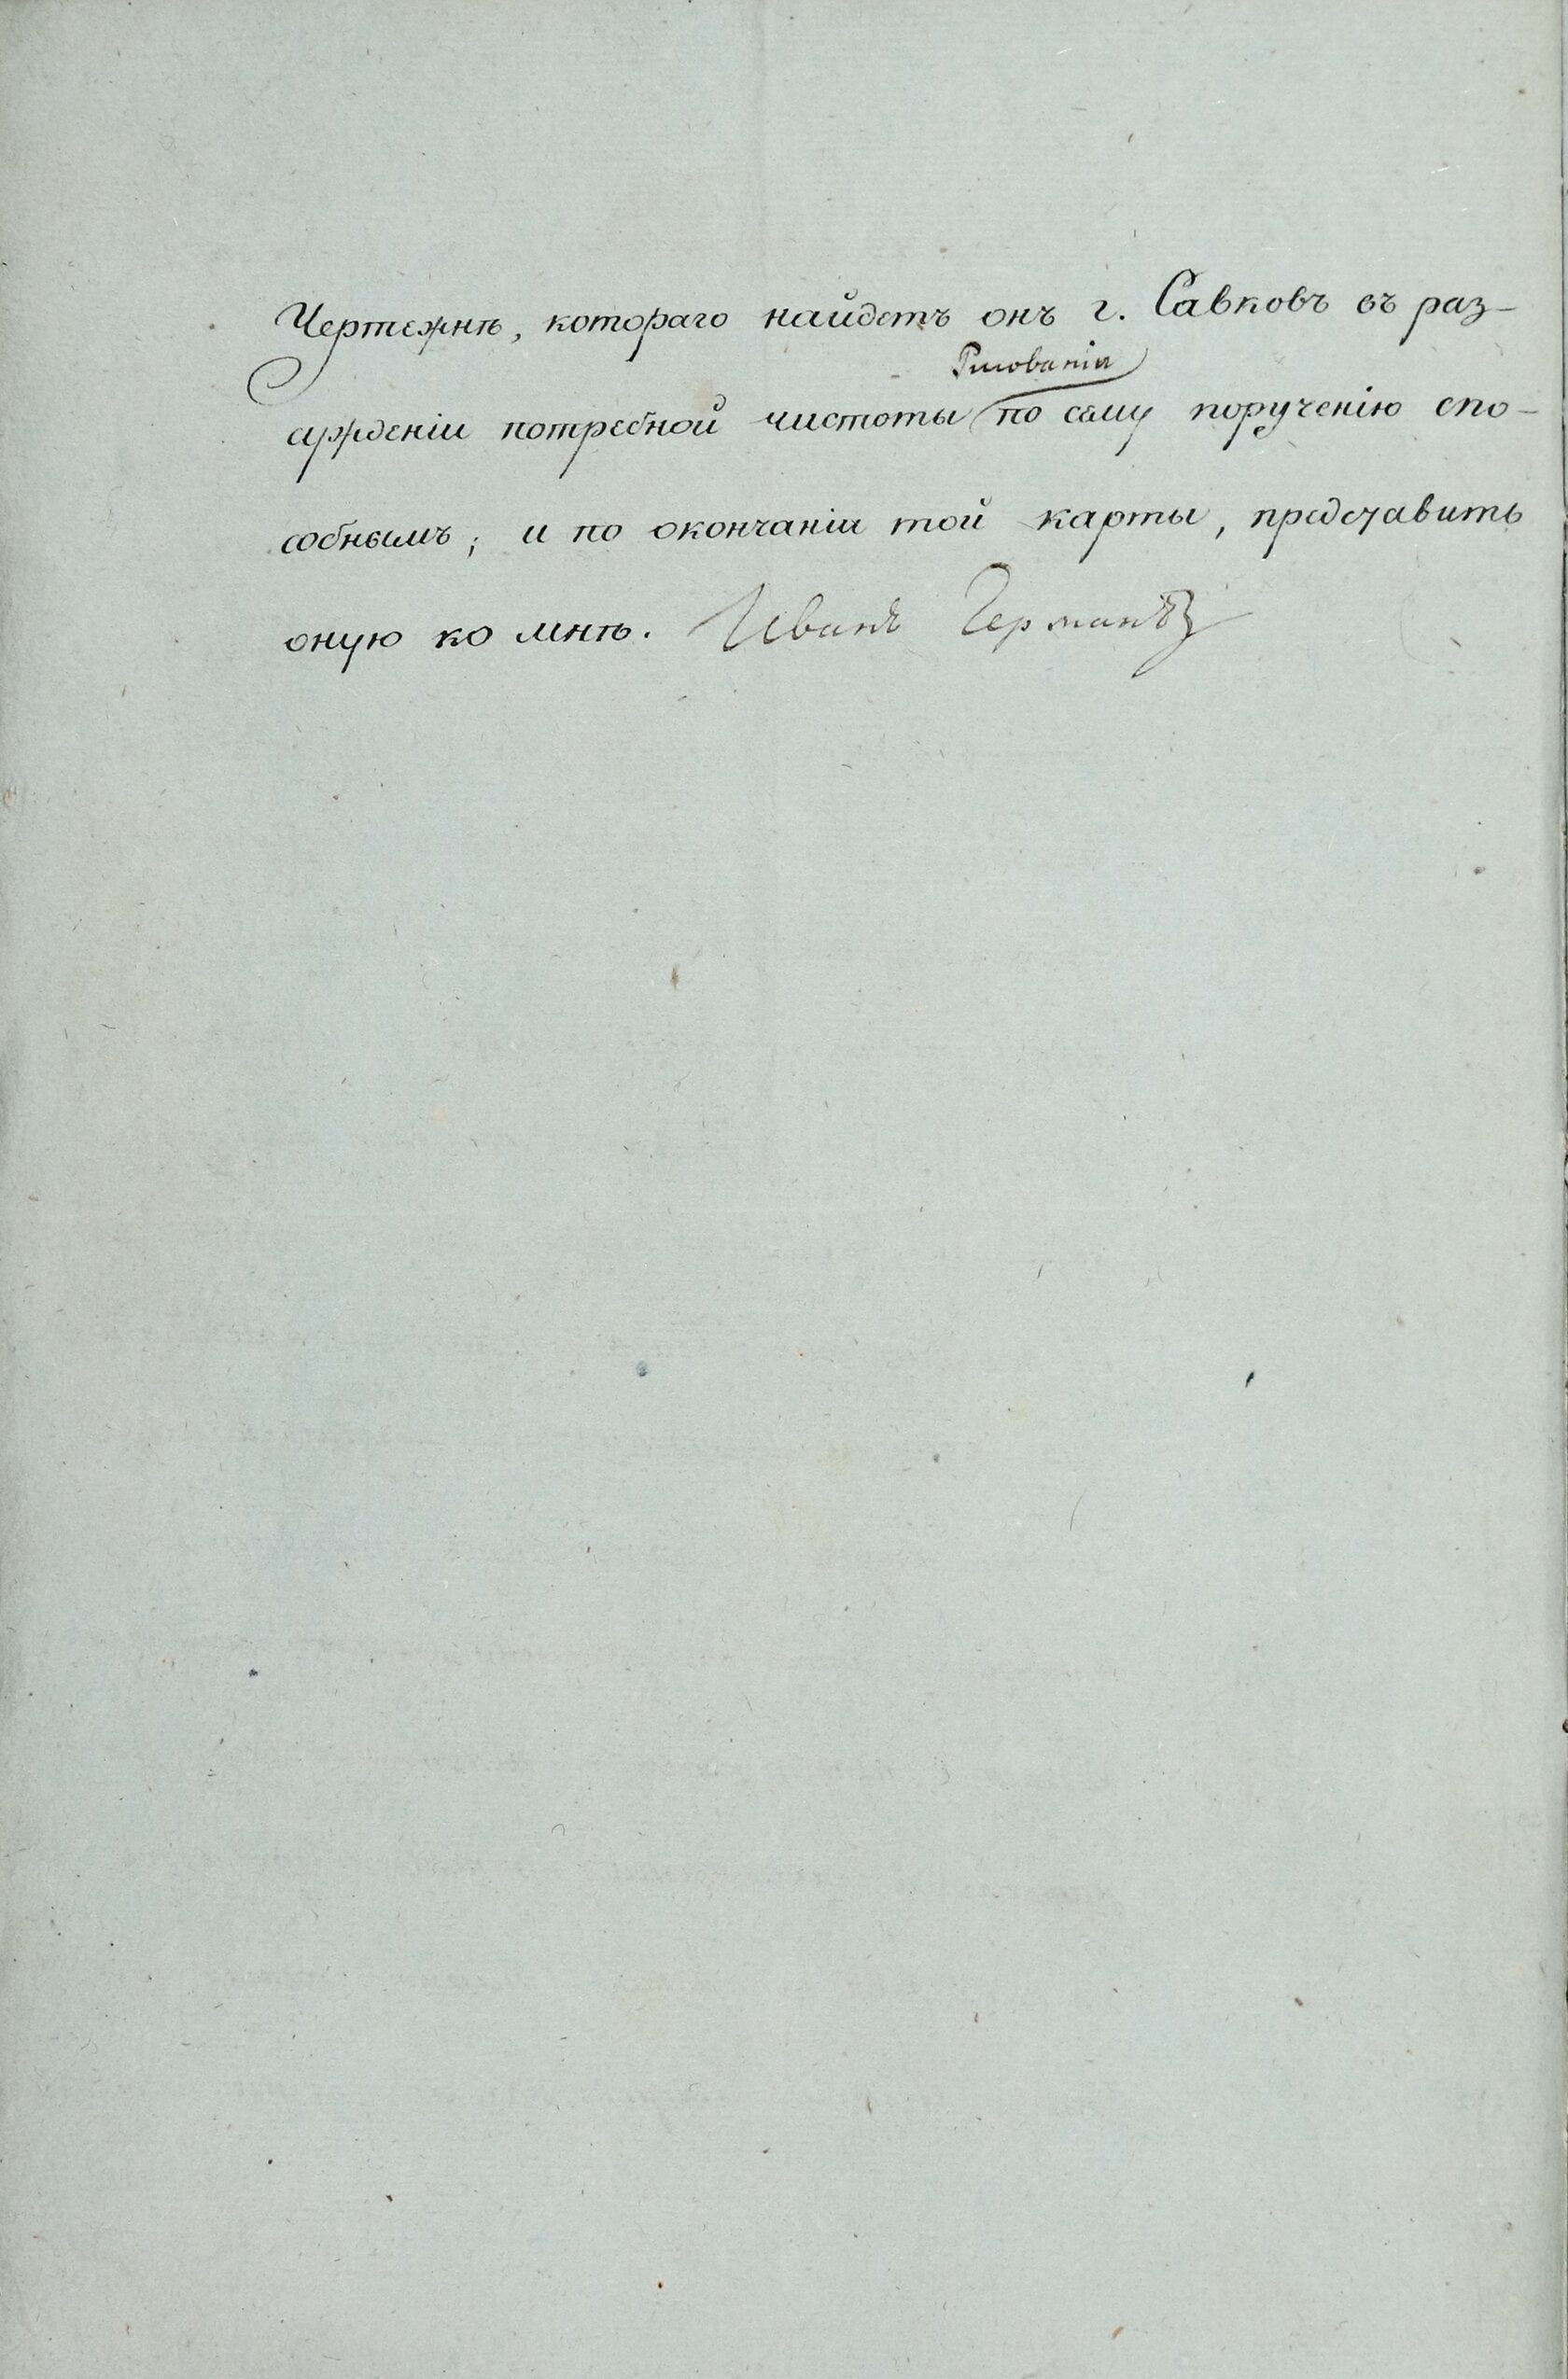 Чертежнѣ, котораго найдетъ онъ г. Савковъ въ раз-
Рисованія
сужденіи потребной чистоты по сему порученію спо-
собнымъ; и по окончаніи той карты, представить
оную ко мнѣ. Иванъ Германъ